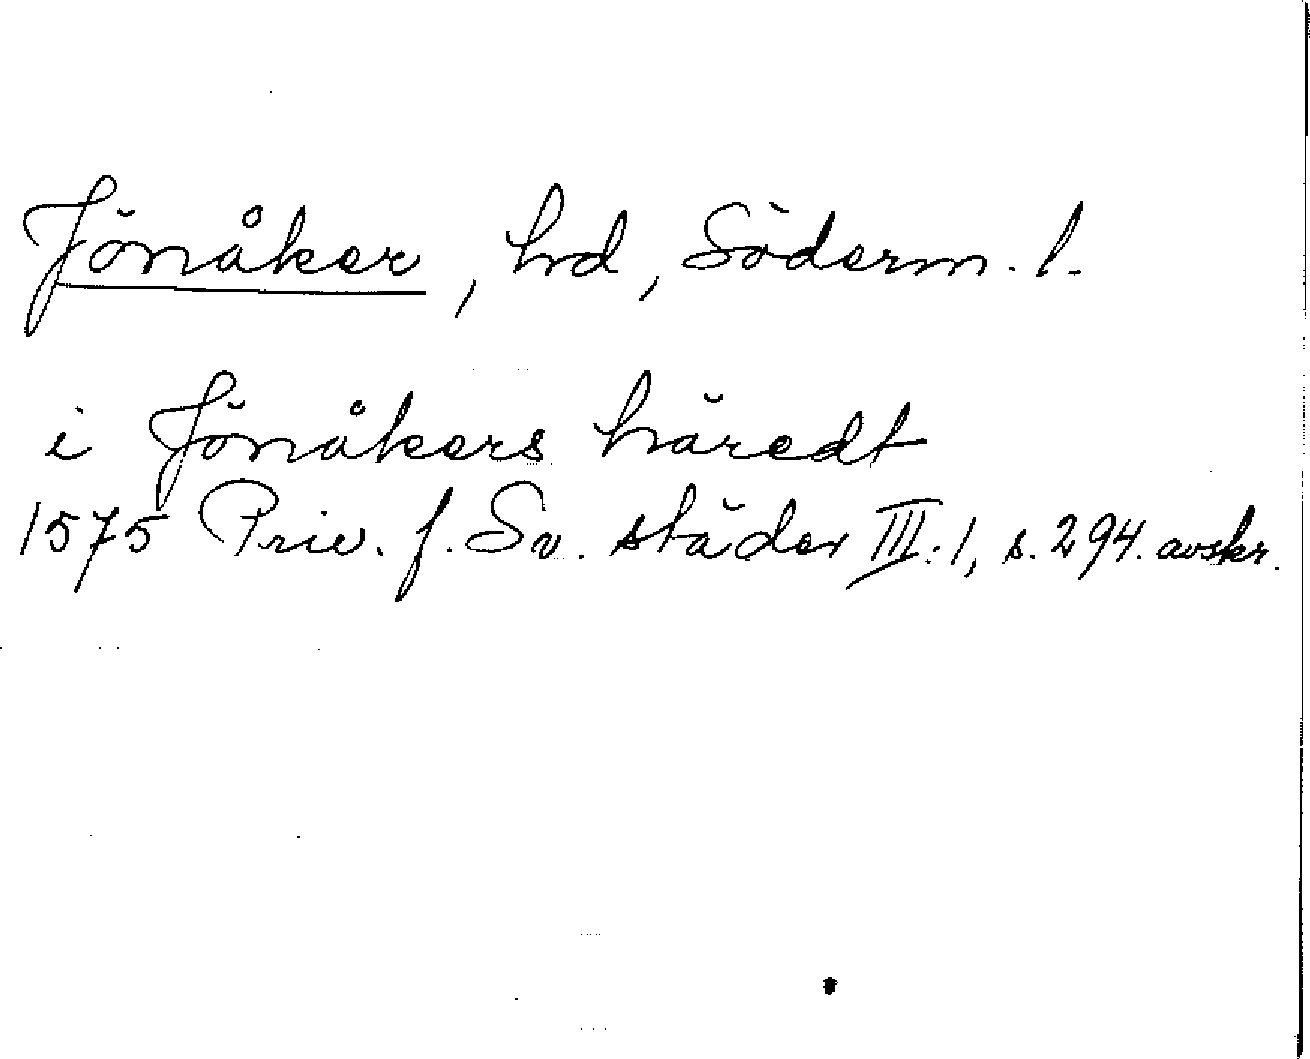 Jönåker, hd, Söderm. l.
i Jönåkers häredt
1575 Priv. f. Sv. städer III:1, s. 294. avskr.